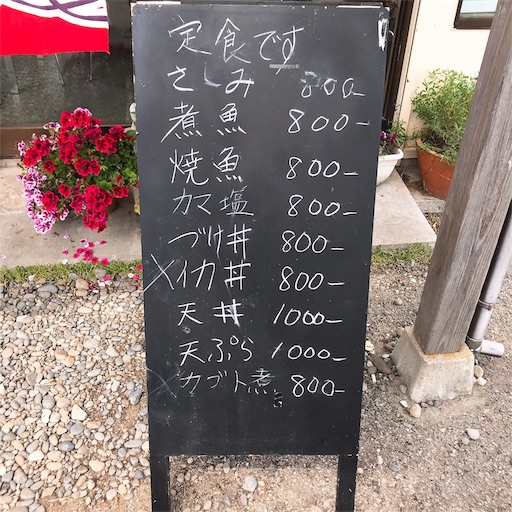 定食です
さしみ 800-
煮魚 800-
焼魚 800-
カマ塩 800-
づけ丼 800-
×イカ丼 800-
天丼 1000-
天ぷら 1000-
×カブト煮 800-